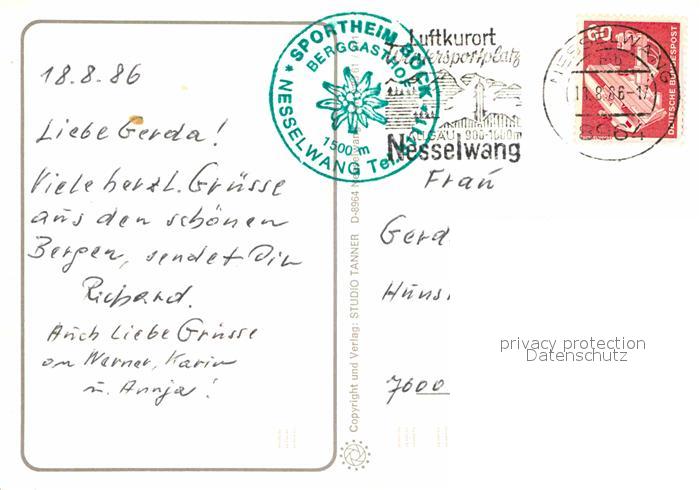 18.8.86
Liebe Gerda!
Viele herzl. Grüsse
aus den schönen
Bergen, sendet Dir
Richard.
Auch Liebe Grüsse
an Werner, Karin
u. Annja!
* SPORTHEIM BÖCK *
BERGGASTHOF
1500 m
NESSELWANG Tel.
Luftkurort
Wintersportplatz
ALLGÄU 900-1600m
Nesselwang
NESSELWANG
18.8.86-17
8964
60
DEUTSCHE BUNDESPOST
Copyright und Verlag: STUDIO TANNER D-8964 Nesselwang
Frau
Gerd
Huns
7600
privacy protection
Datenschutz